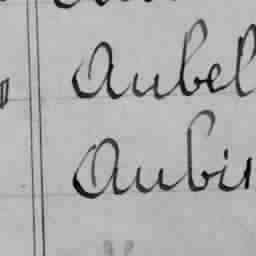 Aubel
Aubin